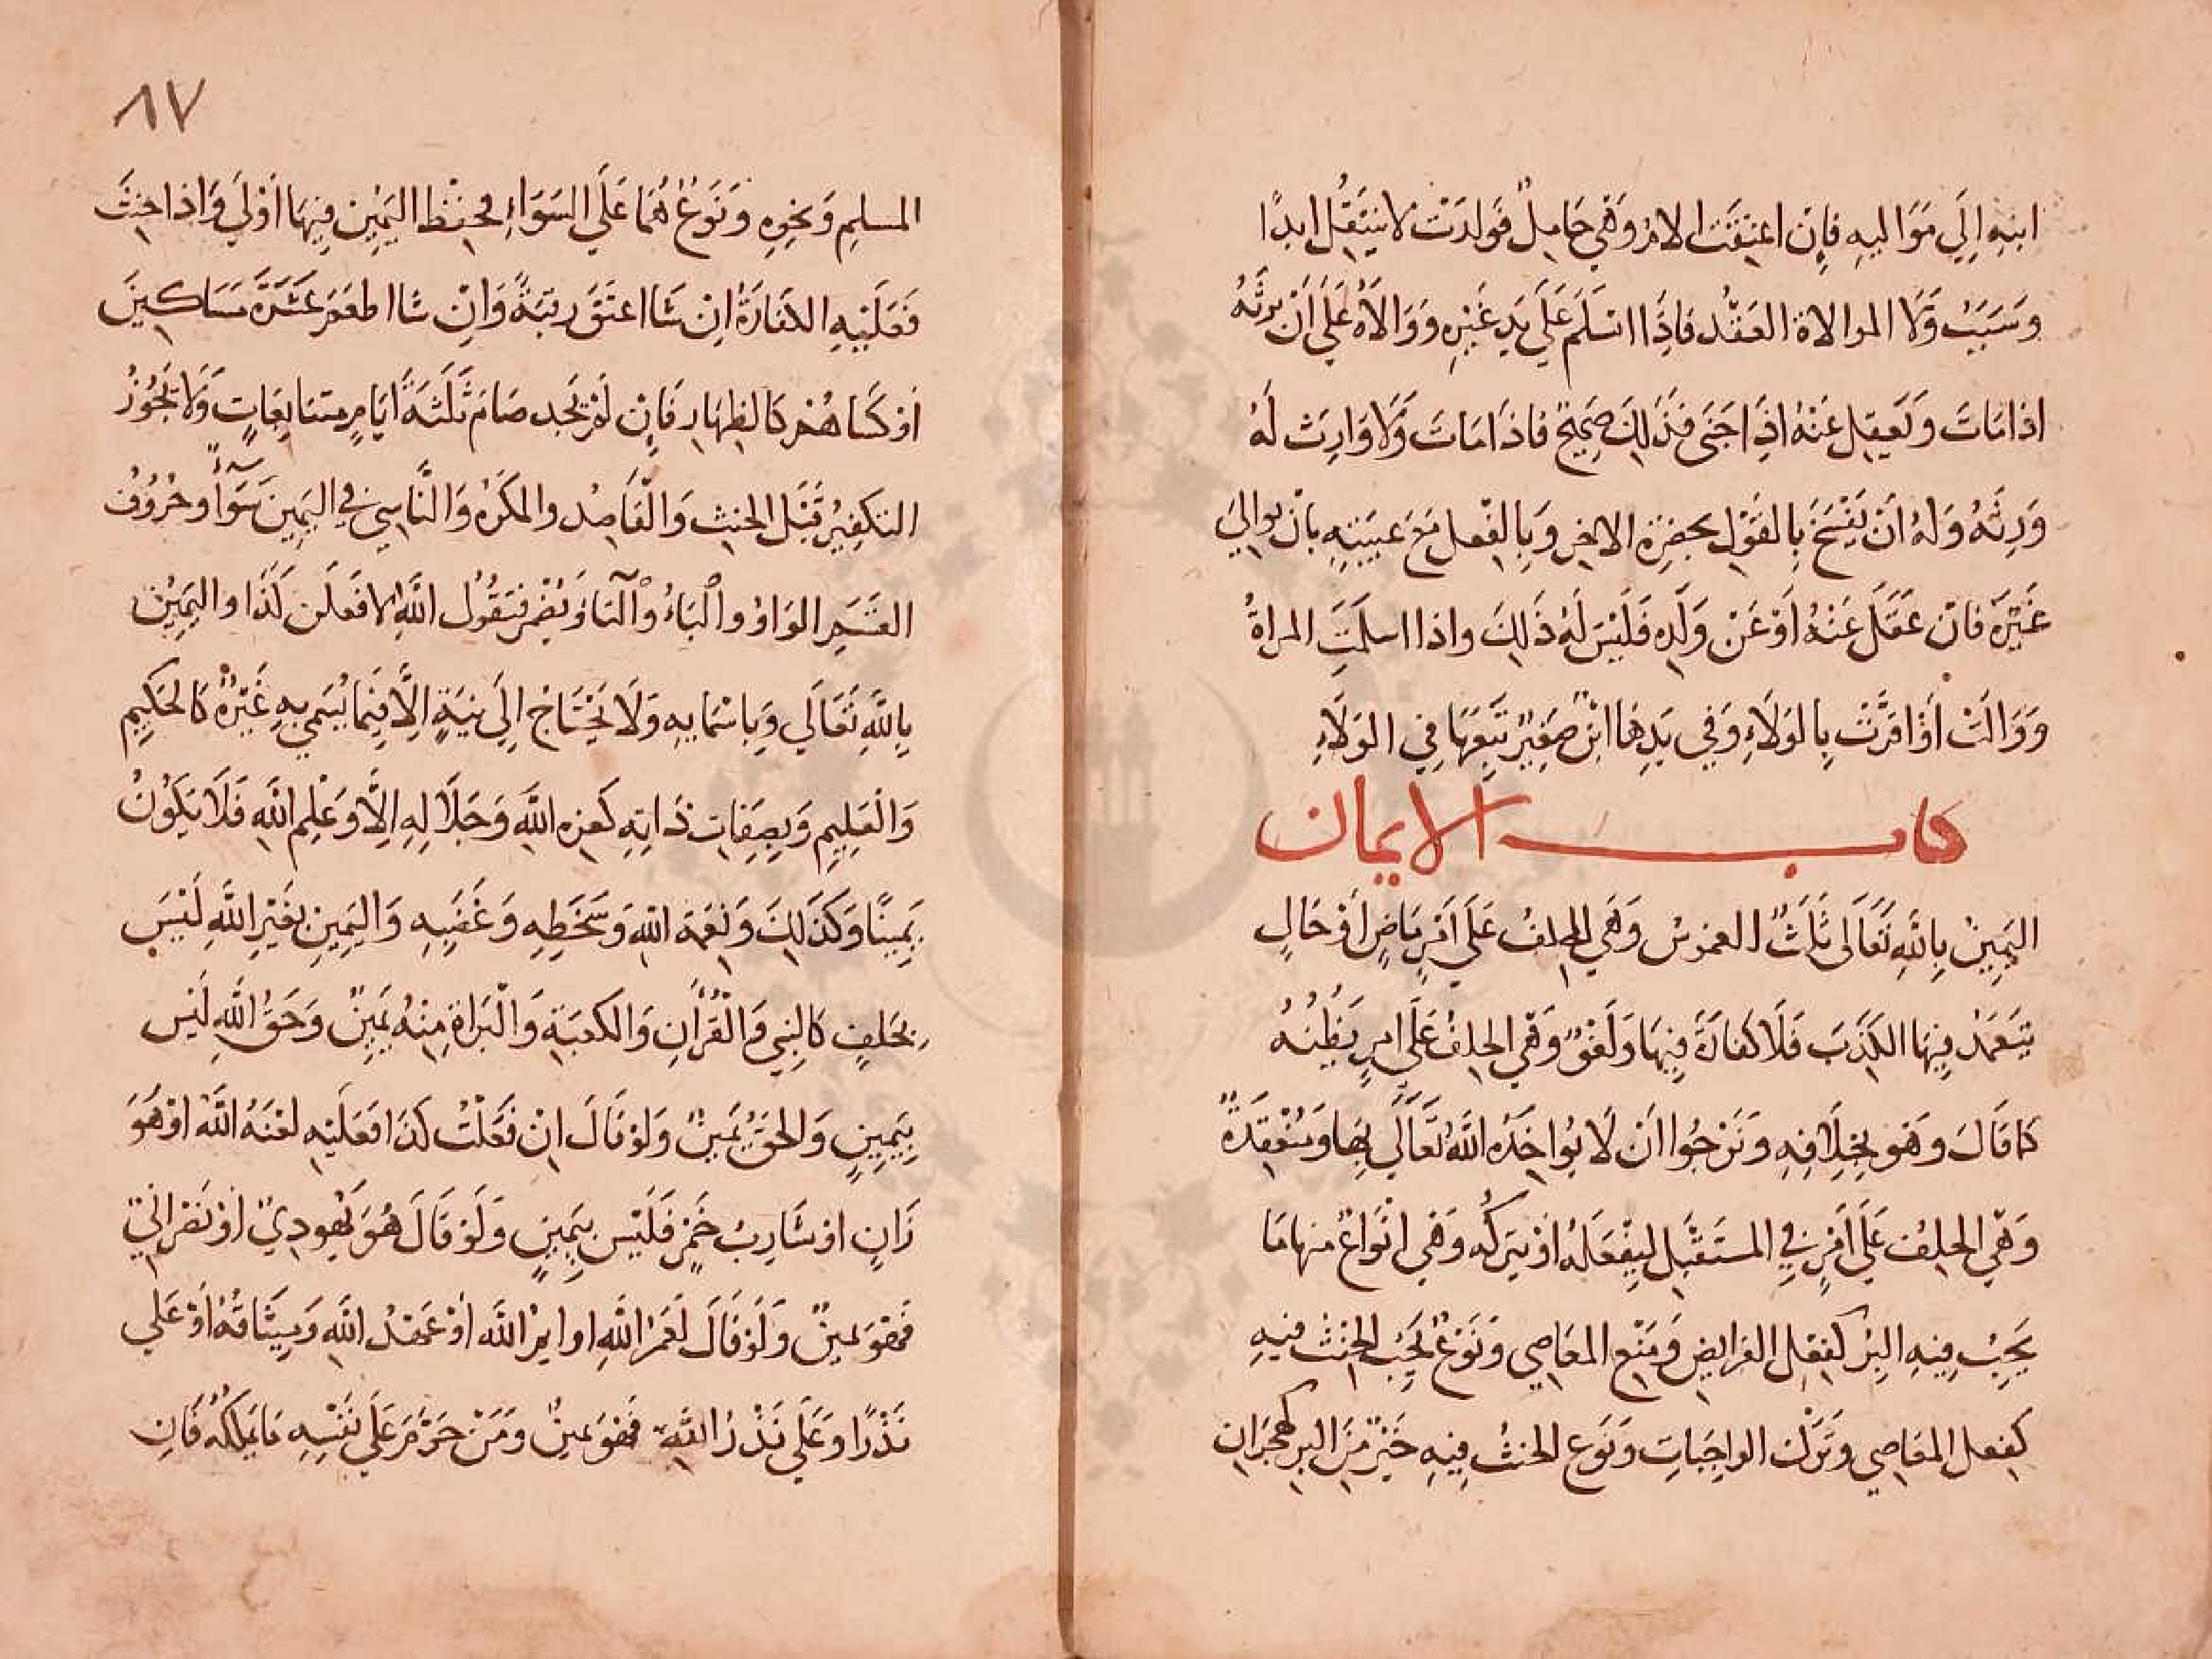 ابنِهِ إِلَى مَوَاليهِ فإِن اعتِقَت الامُ وَهْيَ حَامِلٌ فَولدَتْ لا يَنتَقِلُ ابدًا
وَسَبَبُ وَلَا الموالاة العَقْد فاذَا اسْلَمَ عَلَي يَدِ غَيْرِهِ وَوَالَاهُ عَلَي اَنْ يرثَهُ
اذا مَاتَ وَيَعقِل عَنْهُ اذَا جَنَى فَذَلِكَ صَحِيحٌ فاذَا مَاتَ وَلَا وَارِثَ لَهُ
وَرِثَهُ وَلهُ أنْ يَفْسَخَ بِالقَوْلِ بحضرَة الاخِرِ وَبِالفِعْل مَعَ غيبَتِهِ بانْ يوالِيَ
غَيْرَهُ فانْ عَقَلَ عَنْهُ أوْ عَنْ وَلَدِه فَلَيْسَ لَهُ ذَلِكَ واذا اسلَمَتِ المراةُ
وَوَالَتْ أوْ اقرَّتْ بِالوَلَاءِ وَفي يَدِهَا ابْنٌ صَغِيرٌ تَبِعَهَا فِي الوَلَاءِ
كتاب الايمان
اليَمِينُ بِاللَّهِ تَعَالَى ثَلَثٌ الغموسُ وَهَي الحلِفُ عَلَى أمْرٍ مَاضٍ أوْ حَالٍ
يتَعَمَّدُ فِيهَا الكَذِبَ فَلَا كفارَةَ فِيهَا وَلَغْوٌ وَهْي الحلِفُ عَلَى امرٍ يَظُنُّهُ
كمَا قَالَ وهَو بِخِلَافِهِ وَنَرْجُوا انْ لَا يُواخِذَهُ اللَّهُ تَعَالَي بِهَا وَمُنْعَقِدَةٌ
وَهْيَ الحلِفُ عَلَى أمْرٍ فِي المستَقْبِلِ لِيَفْعَلَهُ اوْ يَترَكُه وَهْيَ انْوَاعٌ منهَا مَا
يَجِبُ فِيهِ البِرُّ كفِعْلِ الفرايضِ وَمَنْع المعَاصِي وَنَوْعٌ يَجِبُ الحِنْثُ فيهِ
كفِعلِ المعَاصِي وَتَرْك الوَاجِبَاتِ وَنَوع الحنثُ فِيهِ خَيْرٌ مِنَ البرِّ كهجرَان
٨٧
المسلِمِ وَنحوِهِ وَنَوْعٌ هُمَا عَلَي السَوَاءِ فحِفظ اليَمِين فِيهَا أوْلَي وَاذا حنِثَ
فَعَلَيْهِ الكفارَةُ إِنْ شَا اعتَقَ رقبَةً وَإِنْ شا اطعَمَ عَشَرَةَ مَسَاكِينَ
أوْ كسَاهُمْ كالظِهَارِ فَإِن لَمْ يَجد صَامَ ثَلَثَةَ أيَامٍ متتابعَاتٍ وَلَا يَجُوْزُ
التكفِيرُ قَبْل الحنِثِ وَالْقَاصِدُ والمكرَهُ وَالنَّاسِي فِي اليَمِينِ سَوَآءٌ وَحُرُوْفُ
القَسَمِ الوَاوُ والْبَاءُ والتَّا وَيُضْمَرُ فَيَقُولُ اللَّهِ لا فعَلَن كَذَا واليَمِيْن
بِاللَّهِ تَعَالَي وَبِاسْمَايِهِ وَلَا يَحْتَاجُ إِلَى نيَةٍ إِلَّا فِيمَا يُسَمي بِهِ غَيْرُهُ كالحكِيمِ
وَالْعَلِيمِ وَبِصِفَات ذَاتِهِ كعِزه اللَّهِ وَجَلَالِهِ إِلَّا وَعْلِم اللَّهِ فَلَا يَكُونُ
يَمِينًا وَكذَلِكَ وَنِعْمَة اللَّهِ وَسَخَطِهِ وَغَضَبِهِ وَاليَمِينِ بغَيْرِ اللَّهِ لَيْسَ
بحَلفٍ كالنبِي وَالْقُرْأَنِ وَالكعبَةِ وَالْبَرَاة مِنْهُ يَمِينٌ وَحَقُ اللَّهِ لَيْس
بِيَمِينٍ وَالحقُ يَمينٌ وَلَوْ قَالَ انْ فَعَلْتُ كَذَا فَعَلَيْهِ لعْنَهُ اللَّهِ اوْ هُوَ
زَانٍ اوْ شَارِبُ خَمْرٍ فَلَيْس بِيَمِينٍ وَلَوْ قَالَ هُوَ يَهُودِيٌ اوْ نَصْرَانِيٌ
فَهُوَ يَمينٌ وَلَوْ قَالَ لَعَمْرُ اللَّهِ او ايمُ اللَّه أوْ عَهْدُ اللَّهِ وَمِيثَاقُهُ أوْ عَلَي
نَذْرٌ او عَلَي نَذْرُ اللَّهِ فَهْوَ يَمينٌ وَمَنْ حَرَّمَ عَلَي نَفْسِهِ مَا يَملِكُهُ فَانِ